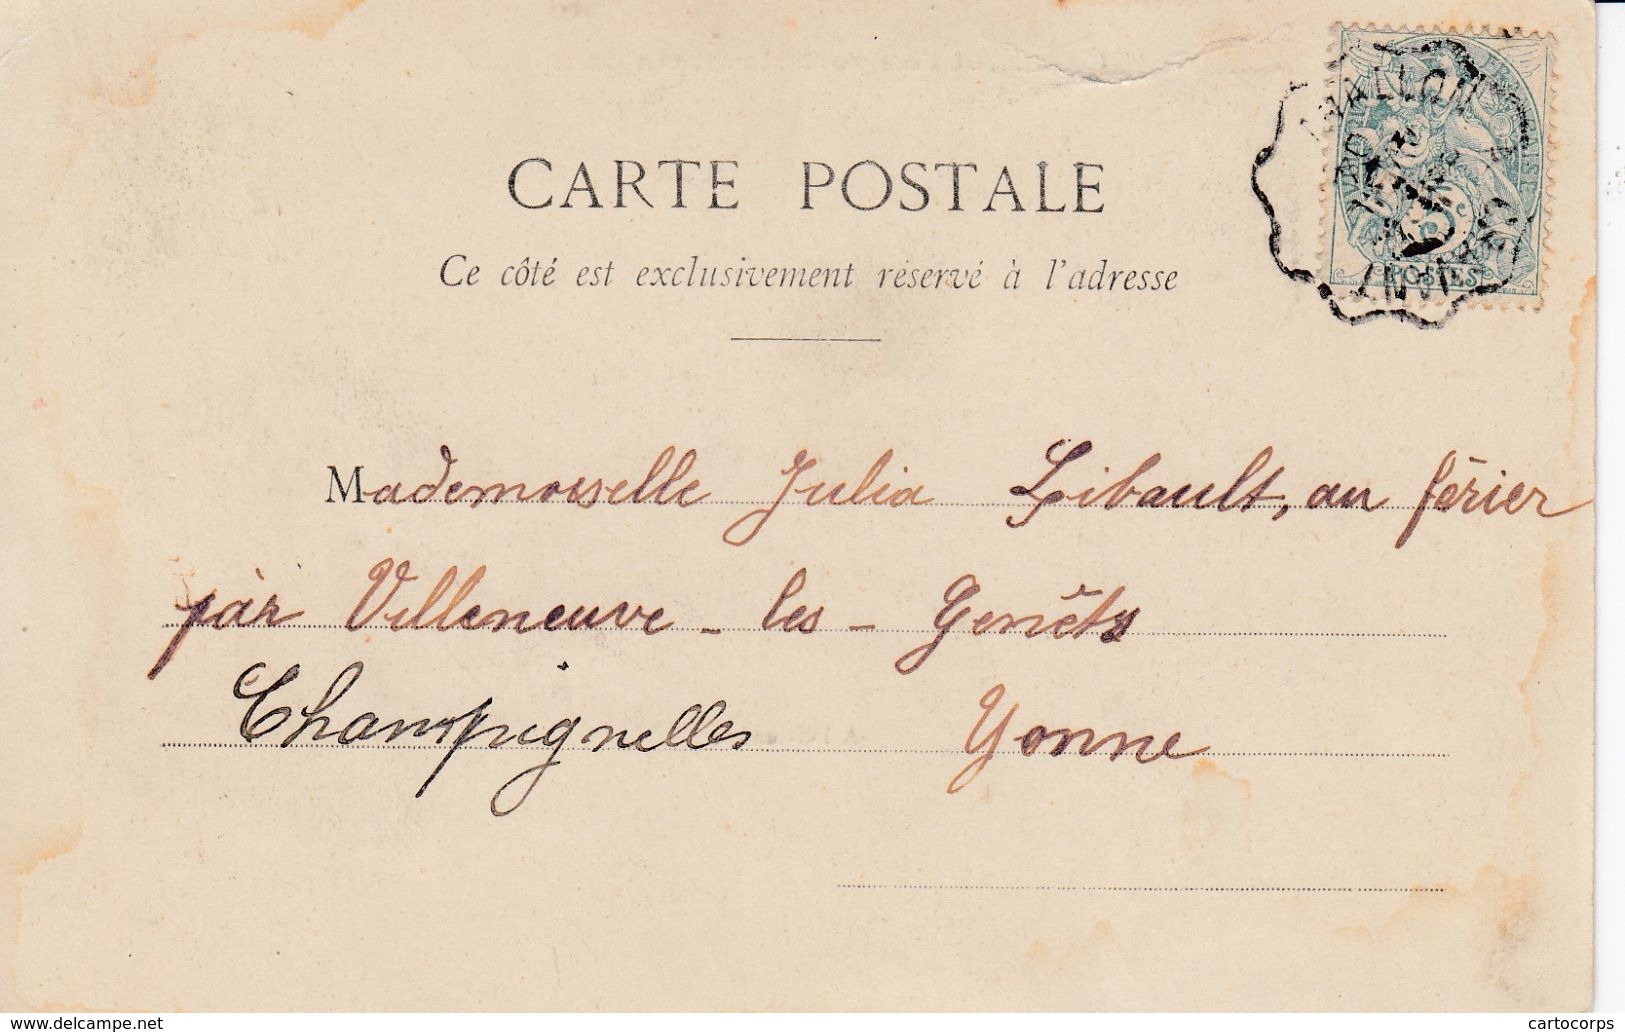 CARTE POSTALE
Ce côté est exclusivement réservé à l'adresse
Mademoiselle Julia Libault, au férier
par Villeneuve - les - Genêts
Champignelles Yonne
POSTES
www.delcampe.net
cartocorps